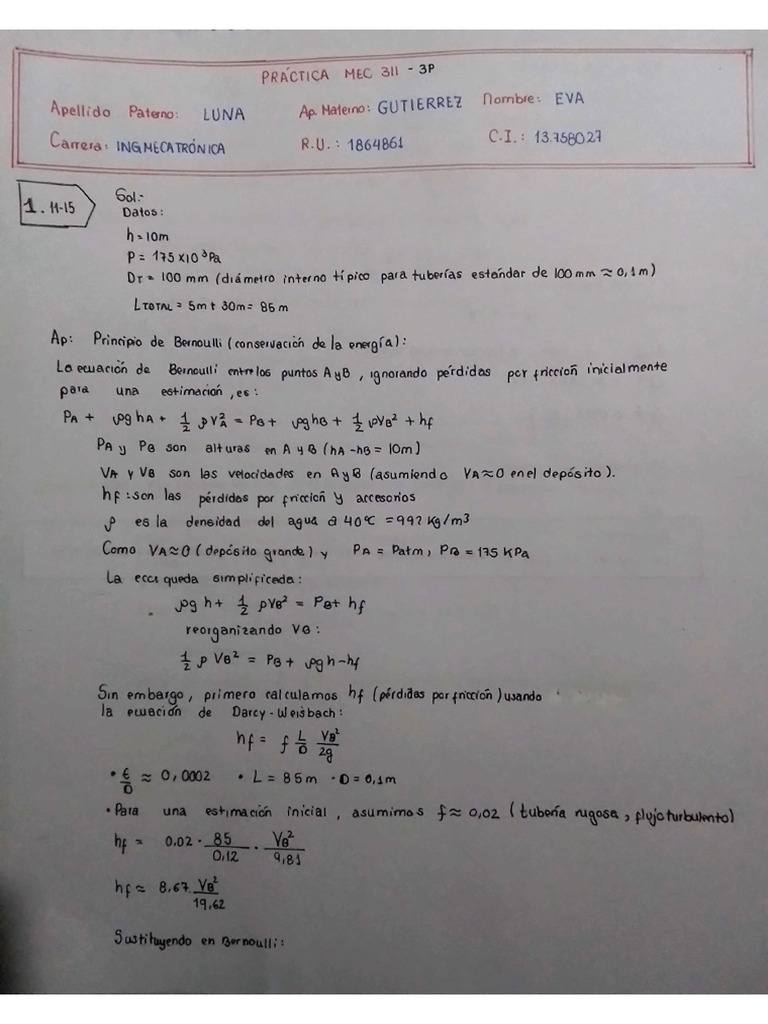 PRÁCTICA MEC 311 - 3P
Apellido Paterno: LUNA Ap. Materno: GUTIERREZ Nombre: EVA
Carrera: ING MECATRÓNICA R.U.: 1864861 C.I.: 13.758027
1. 11-15 Sol:-
Datos:
h = 10m
P = 175 x10³Pa
DT = 100 mm (diámetro interno típico para tuberías estándar de 100 mm ≈ 0,1m)
LTOTAL = 5m + 30m = 85 m
Ap: Principio de Bernoulli (conservación de la energía):
La ecuación de Bernoulli entre los puntos A y B, ignorando pérdidas por fricción inicialmente
para una estimación, es:
PA + ρghA + 1/2 ρVA² = PB + ρghB + 1/2 ρVB² + hf
PA y PB son alturas en A y B (hA - hB = 10m)
VA y VB son las velocidades en A y B (asumiendo VA ≈ 0 en el depósito).
hf : son las pérdidas por fricción y accesorios
ρ es la densidad del agua a 40°C = 992 kg/m³
Como VA ≈ 0 (depósito grande) y PA = Patm, PB = 175 KPa
La ecc queda simplificada:
ρgh + 1/2 ρVB² = PB + hf
reorganizando VB:
1/2 ρ VB² = PB + ρgh - hf
Sin embargo, primero calculamos hf (pérdidas por fricción) usando
la ecuación de Darcy-Weisbach:
hf = f L/D VB²/2g
• ε/D ≈ 0,0002 • L = 85 m • D = 0,1m
• Para una estimación inicial, asumimos f ≈ 0,02 (tubería rugosa, flujo turbulento)
hf = 0.02 · 85/0,12 · VB²/9,81
hf ≈ 8,67 · VB²/19,62
Sustituyendo en Bernoulli: